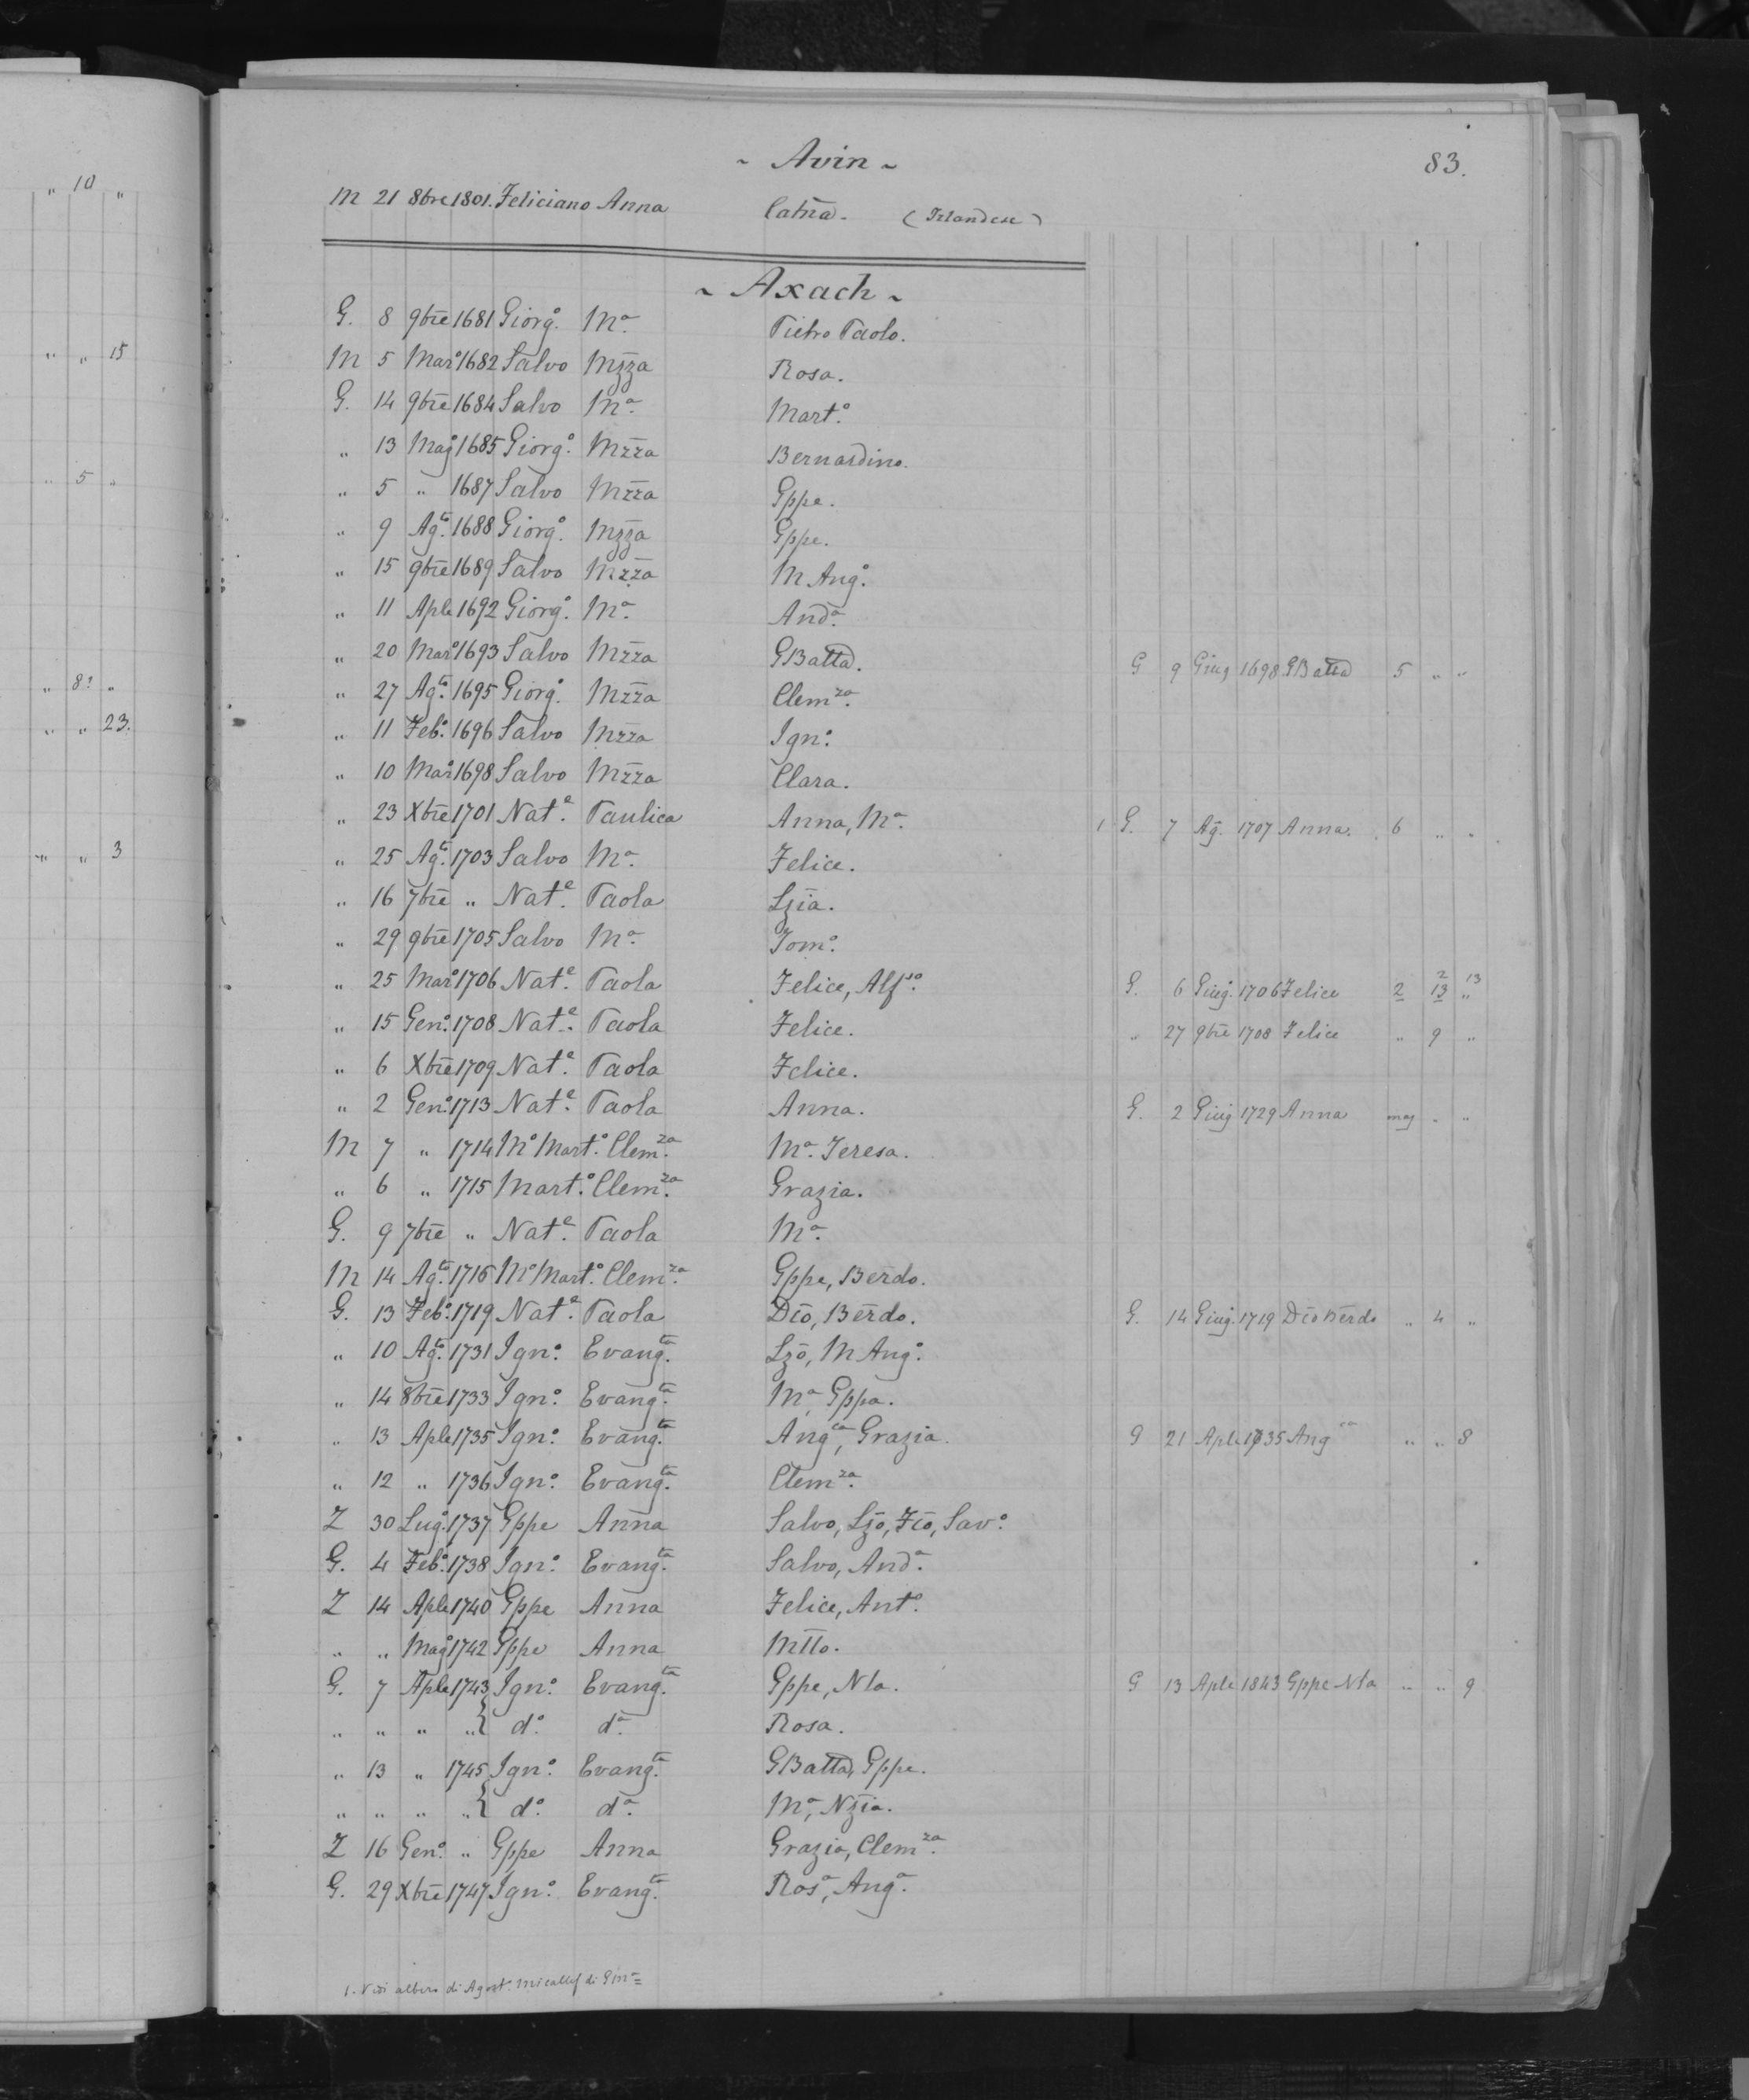 " 10 "
" " 15
" 5 "
" 8? "
" " 23.
" " 3
~ Avin ~ 83.
M 21 8bre 1801. Feliciano Anna Catña. (Irlandese)
~ Axach ~
G. 8 9bre 1681 Giorgº. Mª. Pietro Paolo.
M 5 Marº 1682 Salvo Mzza Rosa.
G. 14 9bre 1684 Salvo Mª. Martº.
" 13 Magº 1685 Giorgº. Mzza Bernardino.
" 5 " 1687 Salvo Mzza Gppe.
" 9 Agto. 1688 Giorgº. Mzza Gppe.
" 15 9bre 1689 Salvo Mzza M Angº.
" 11 Aple 1692 Giorgº. Mª. Andª.
" 20 Marº 1693 Salvo Mzza GBatta. G 9 Giug 1698 GBatta 5 " "
" 27 Agto. 1695 Giorgº. Mzza Clemza.
" 11 Febº. 1696 Salvo Mzza Ignº.
" 10 Marº 1698 Salvo Mzza Clara.
" 23 Xbre 1701 Nate. Paulica Anna, Mª. 1 G. 7 Ag. 1707 Anna. 6 " "
" 25 Agto. 1703 Salvo Mª. Felice.
" 16 7bre " Nate. Paola Lzia.
" 29 9bre 1705 Salvo Mª. Tomº.
" 25 Marº 1706 Nate. Paola Felice, Alfso. G. 6 Giugº. 1706 Felice 2 2 13 13 "
" 15 Genº. 1708 Nate. Paola Felice. " 27 9bre 1708 Felice " 9 "
" 6 Xbre 1709 Nate. Paola Felice.
" 2 Genº. 1713 Nate. Paola Anna. G. 2 Giug 1729 Anna mag " "
M 7 " 1714 Mº Martº. Clemza. Mª. Teresa.
" 6 " 1715 Martº. Clemza. Grazia.
G. 9 7bre " Nate. Paola Mª.
M 14 Agto. 1716 Mº Martº. Clemza. Gppe, Berdo.
G. 13 Febº. 1719 Nate. Paola Dio, Berdo. G. 14 Giugº. 1719 Dio Berdo " 4 "
" 10 Agto. 1731 Ignº. Evangta. Lzo, M Angº.
" 14 8bre 1733 Ignº. Evangta. Mª, Gppa.
" 13 Aple 1735 Ignº. Evangta. Angca, Grazia. G 21 Aple 1735 Angca " " 8
" 12 " 1736 Ignº. Evangta. Clemza.
Z 30 Lugº. 1737 Gppe Anna Salvo, Lzo, Fco, Savº.
G. 4 Febº. 1738 Ignº. Evangta. Salvo, Andª.
Z 14 Aple 1740 Gppe Anna Felice, Antº.
" " Magº 1742 Gppe Anna Mtto.
G. 7 Aple 1743 Ignº. Evangta. Gppe, Nla. G 13 Aple 1843 Gppe Nla " " 9
" " " " { dº. dª. Rosa.
" 13 " 1745 Ignº. Evangta. GBatta, Gppe.
" " " " { dº. dª. Mª, Nzia.
Z 16 Genº. " Gppe Anna Grazia, Clemza.
G. 29 Xbre 1747 Ignº. Evangta. Rosª, Angª.
1. Vidi albero di Agostº. Micallef di Gmª=